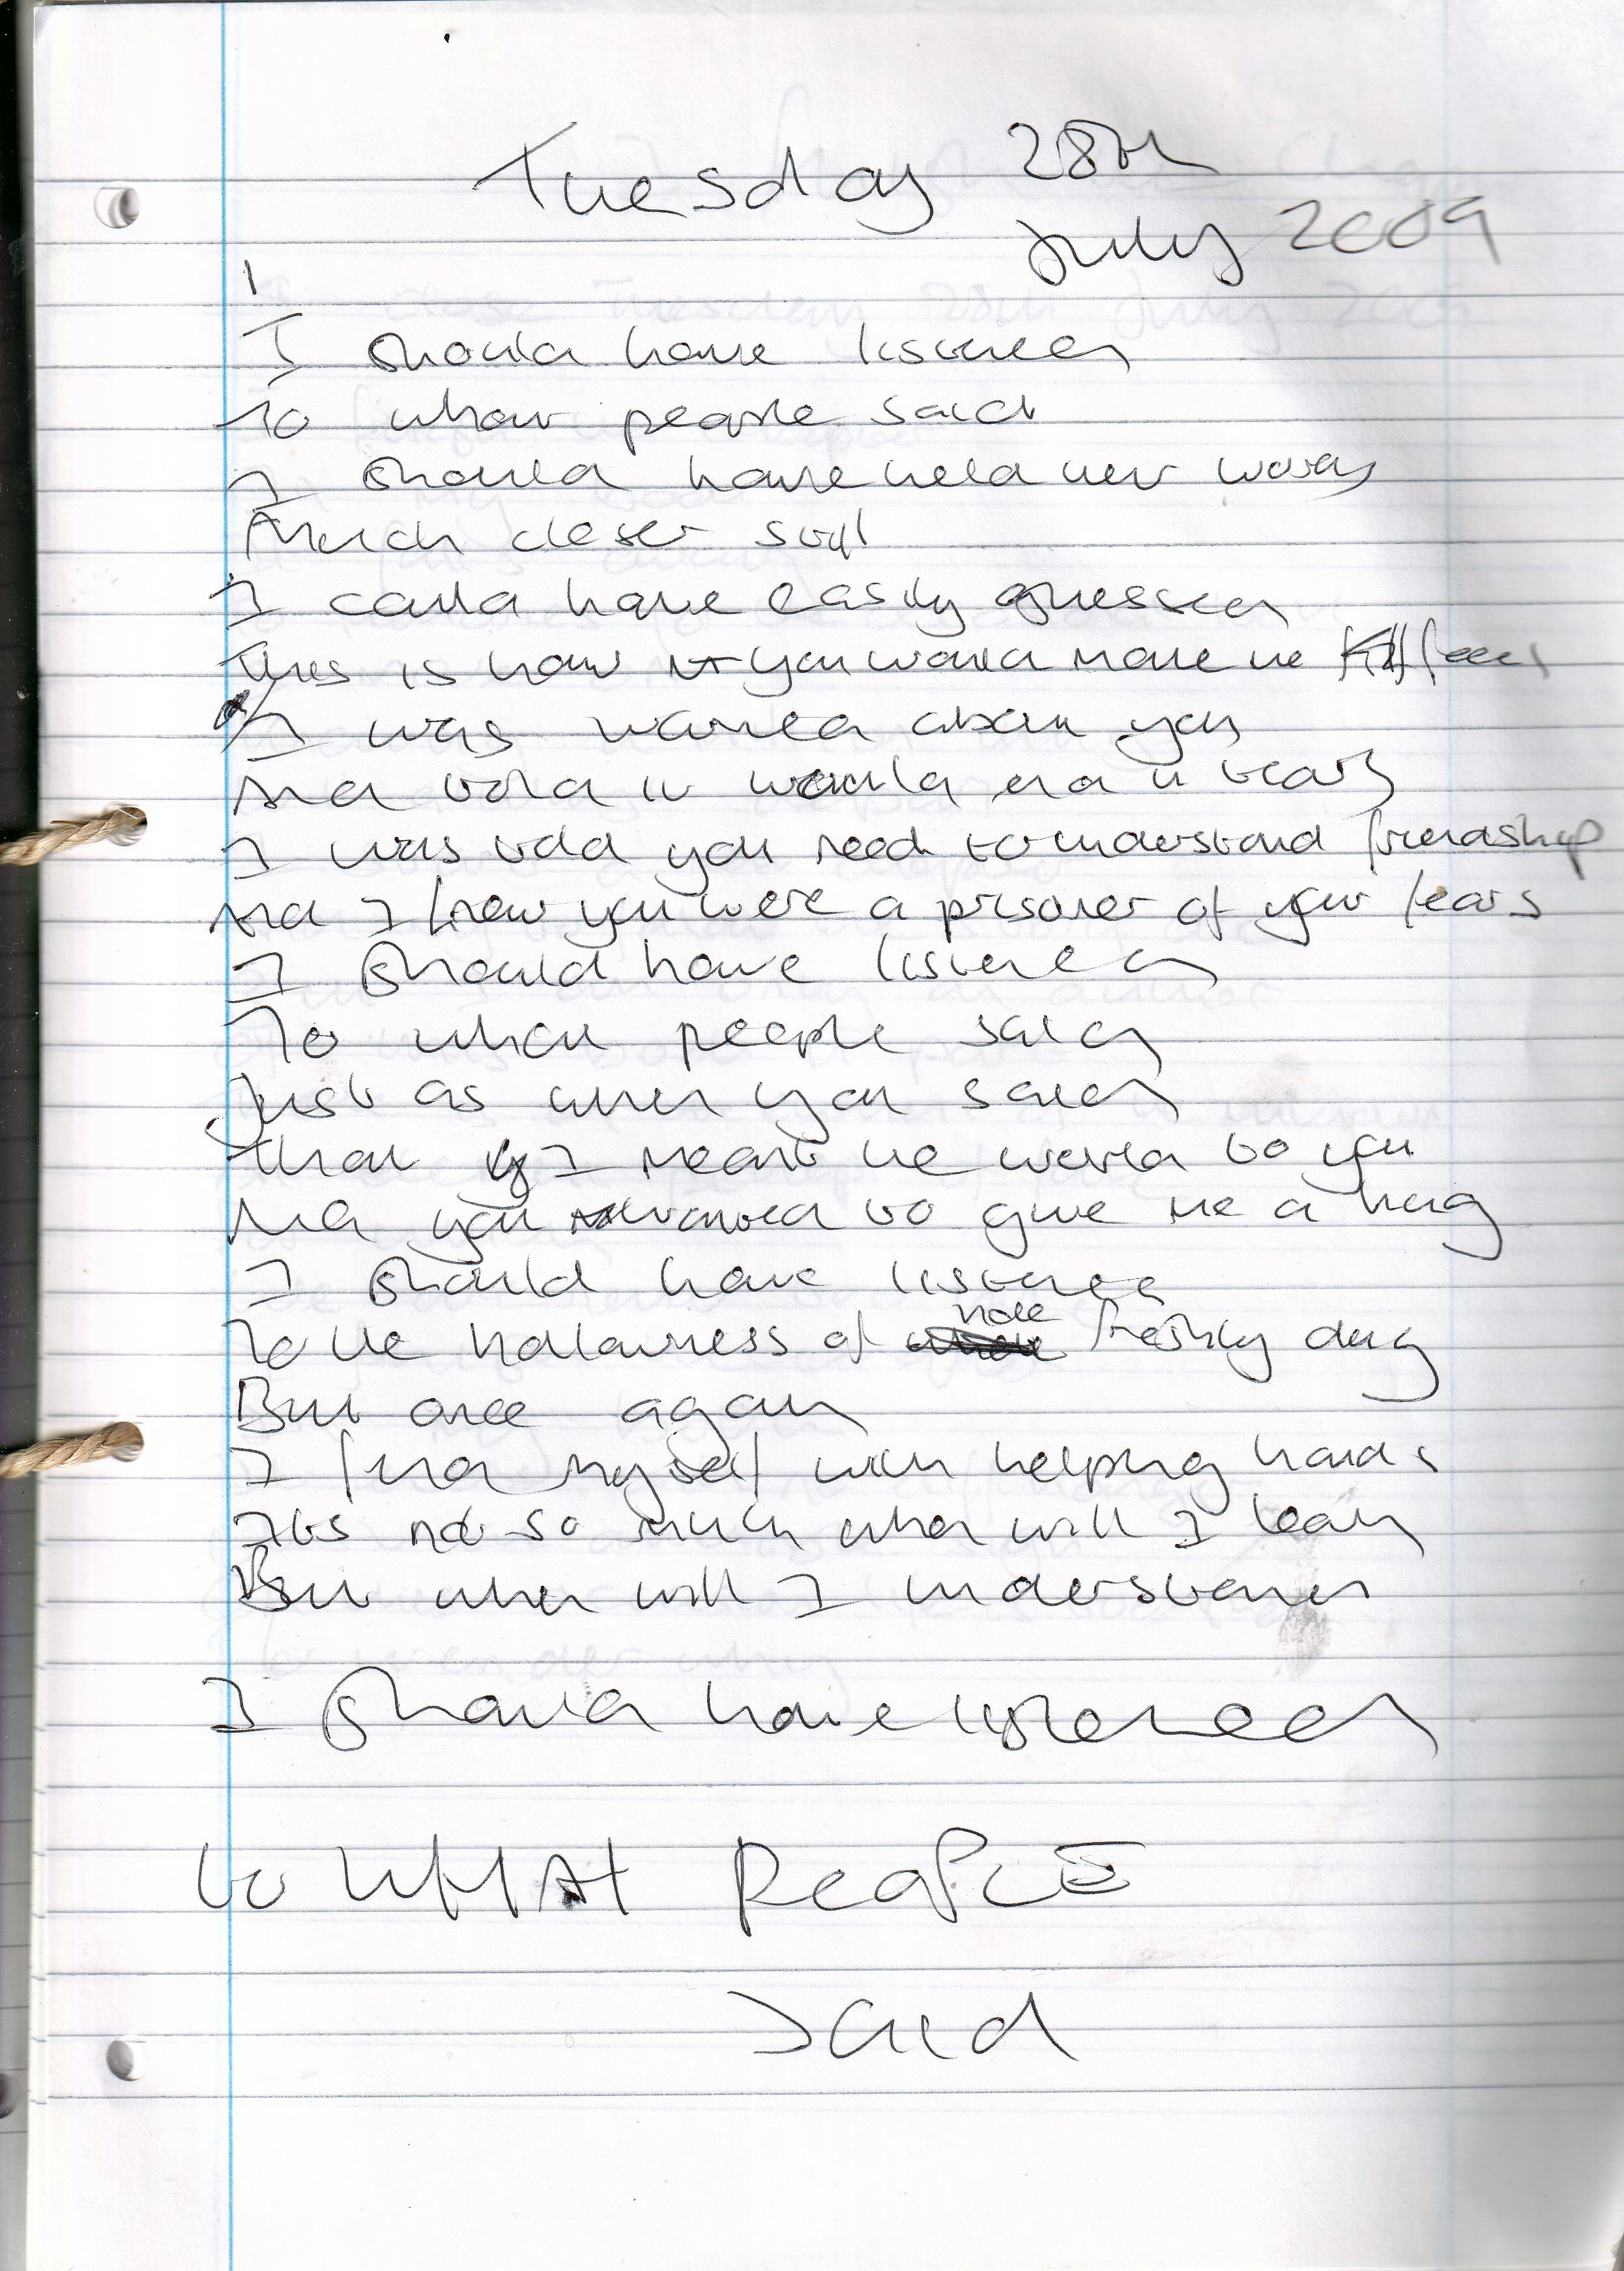 Tuesday 28th
July 2009
I should have listened
To what people said
I should have held their words
Much closer still
I could have easily guessed
This is how you would make me feel
I was warned about you
And told it would end in tears
I was told you need to understand friendship
And I knew you were a prisoner of your fears
I should have listened
To what people said
Just as when you said
That I meant the world to you
And you wanted to give me a hug
I should have listened
To the hollowness of hole freshly dug
But once again
I find myself with helping hands
Its not so much when will I learn
But when will I understand
I should have listened
to WHAT PEOPLE
Said